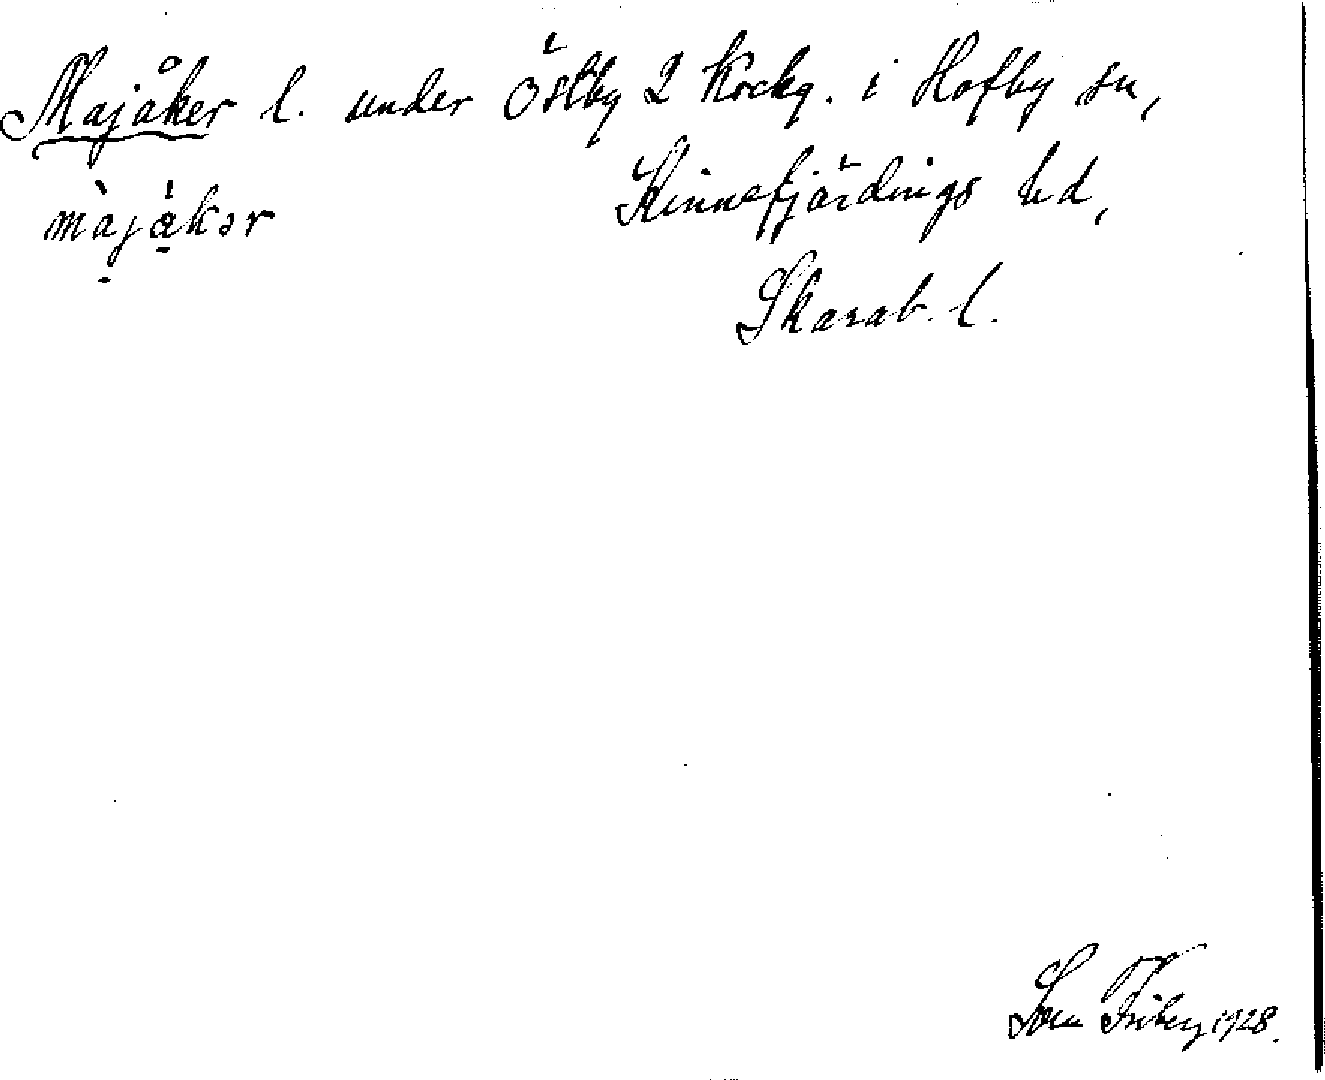 Majåker l. under Östby 2 Kockg. i Hofby sn,
màjåkər Kinnefjärdings hd,
Skarab. l.
Sven Friberg 1928.